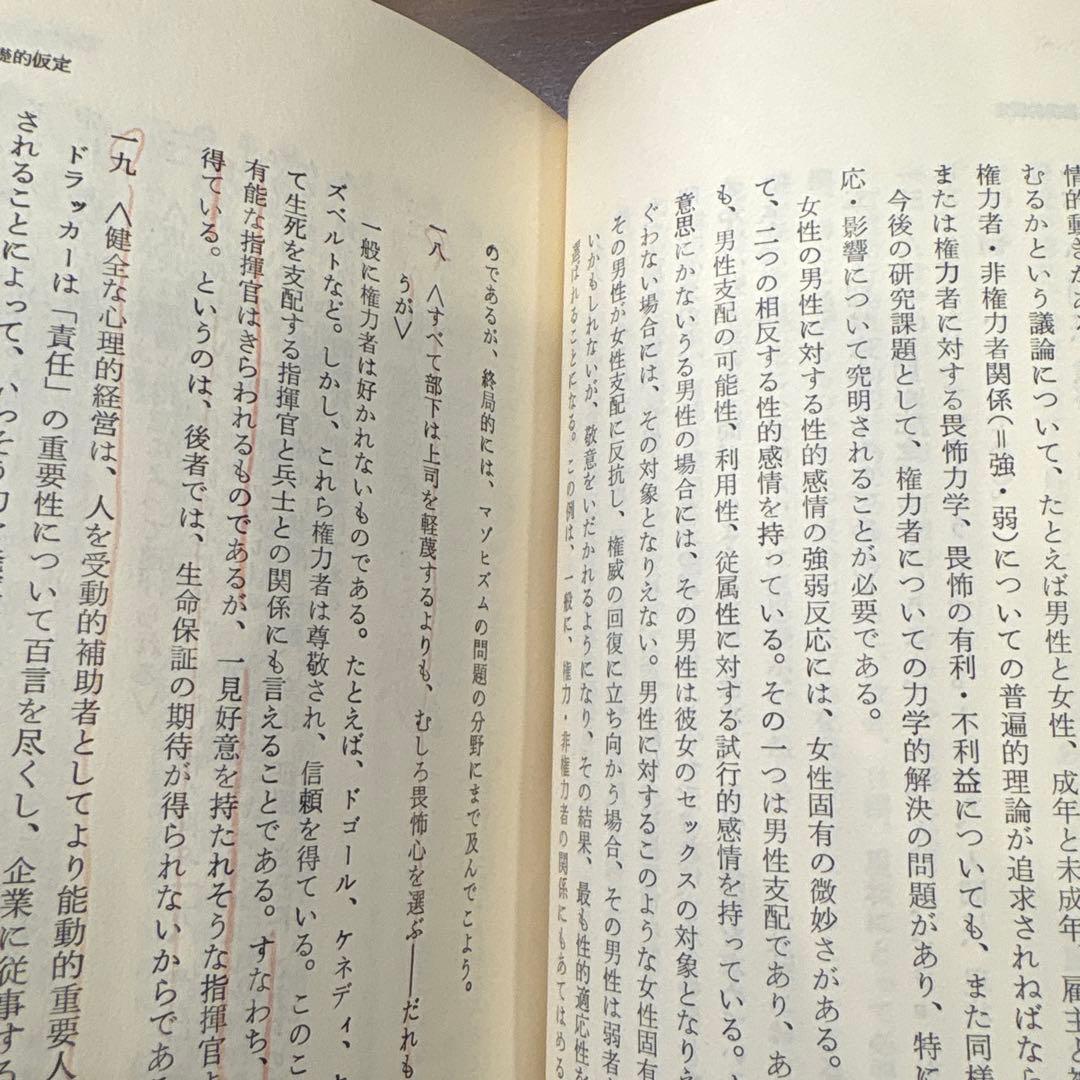 情的動きがあ
むるかという議論について、たとえば男性と女性、成年と未成年、雇主と
権力者・非権力者関係(＝強・弱)についての普遍的理論が追求されねばなら
または権力者に対する畏怖力学、畏怖の有利・不利益についても、また同様
今後の研究課題として、権力者についての力学的解決の問題があり、特に
応・影響について究明されることが必要である。
女性の男性に対する性的感情の強弱反応には、女性固有の微妙さがある。
て、二つの相反する性的感情を持っている。その一つは男性支配であり、あ
も、男性支配の可能性、利用性、従属性に対する試行的感情を持っている。
意思にかないうる男性の場合には、その男性は彼女のセックスの対象となりえ
ぐわない場合には、その対象となりえない。男性に対するこのような女性固有
その男性が女性支配に反抗し、権威の回復に立ち向かう場合、その男性は弱者
いかもしれないが、敬意をいだかれるようになり、その結果、最も性的適応性を
選ばれることになる。この例は、一般に、権力・非権力者の関係にもあてはめる
のであるが、終局的には、マゾヒズムの問題の分野にまで及んでこよう。
一八　〈すべて部下は上司を軽蔑するよりも、むしろ畏怖心を選ぶ――だれも
うが〉
一般に権力者は好かれないものである。たとえば、ドゴール、ケネディ、
ズベルトなど。しかし、これら権力者は尊敬され、信頼を得ている。このこ
て生死を支配する指揮官と兵士との関係にも言えることである。すなわち、
有能な指揮官はきらわれるものであるが、一見好意を持たれそうな指揮官
得ている。というのは、後者では、生命保証の期待が得られないからであ
一九　〈健全な心理的経営は、人を受動的補助者としてより能動的重要人
ドラッカーは「責任」の重要性について百言を尽くし、企業に従事する
されることによって、いっそう
礎的仮定